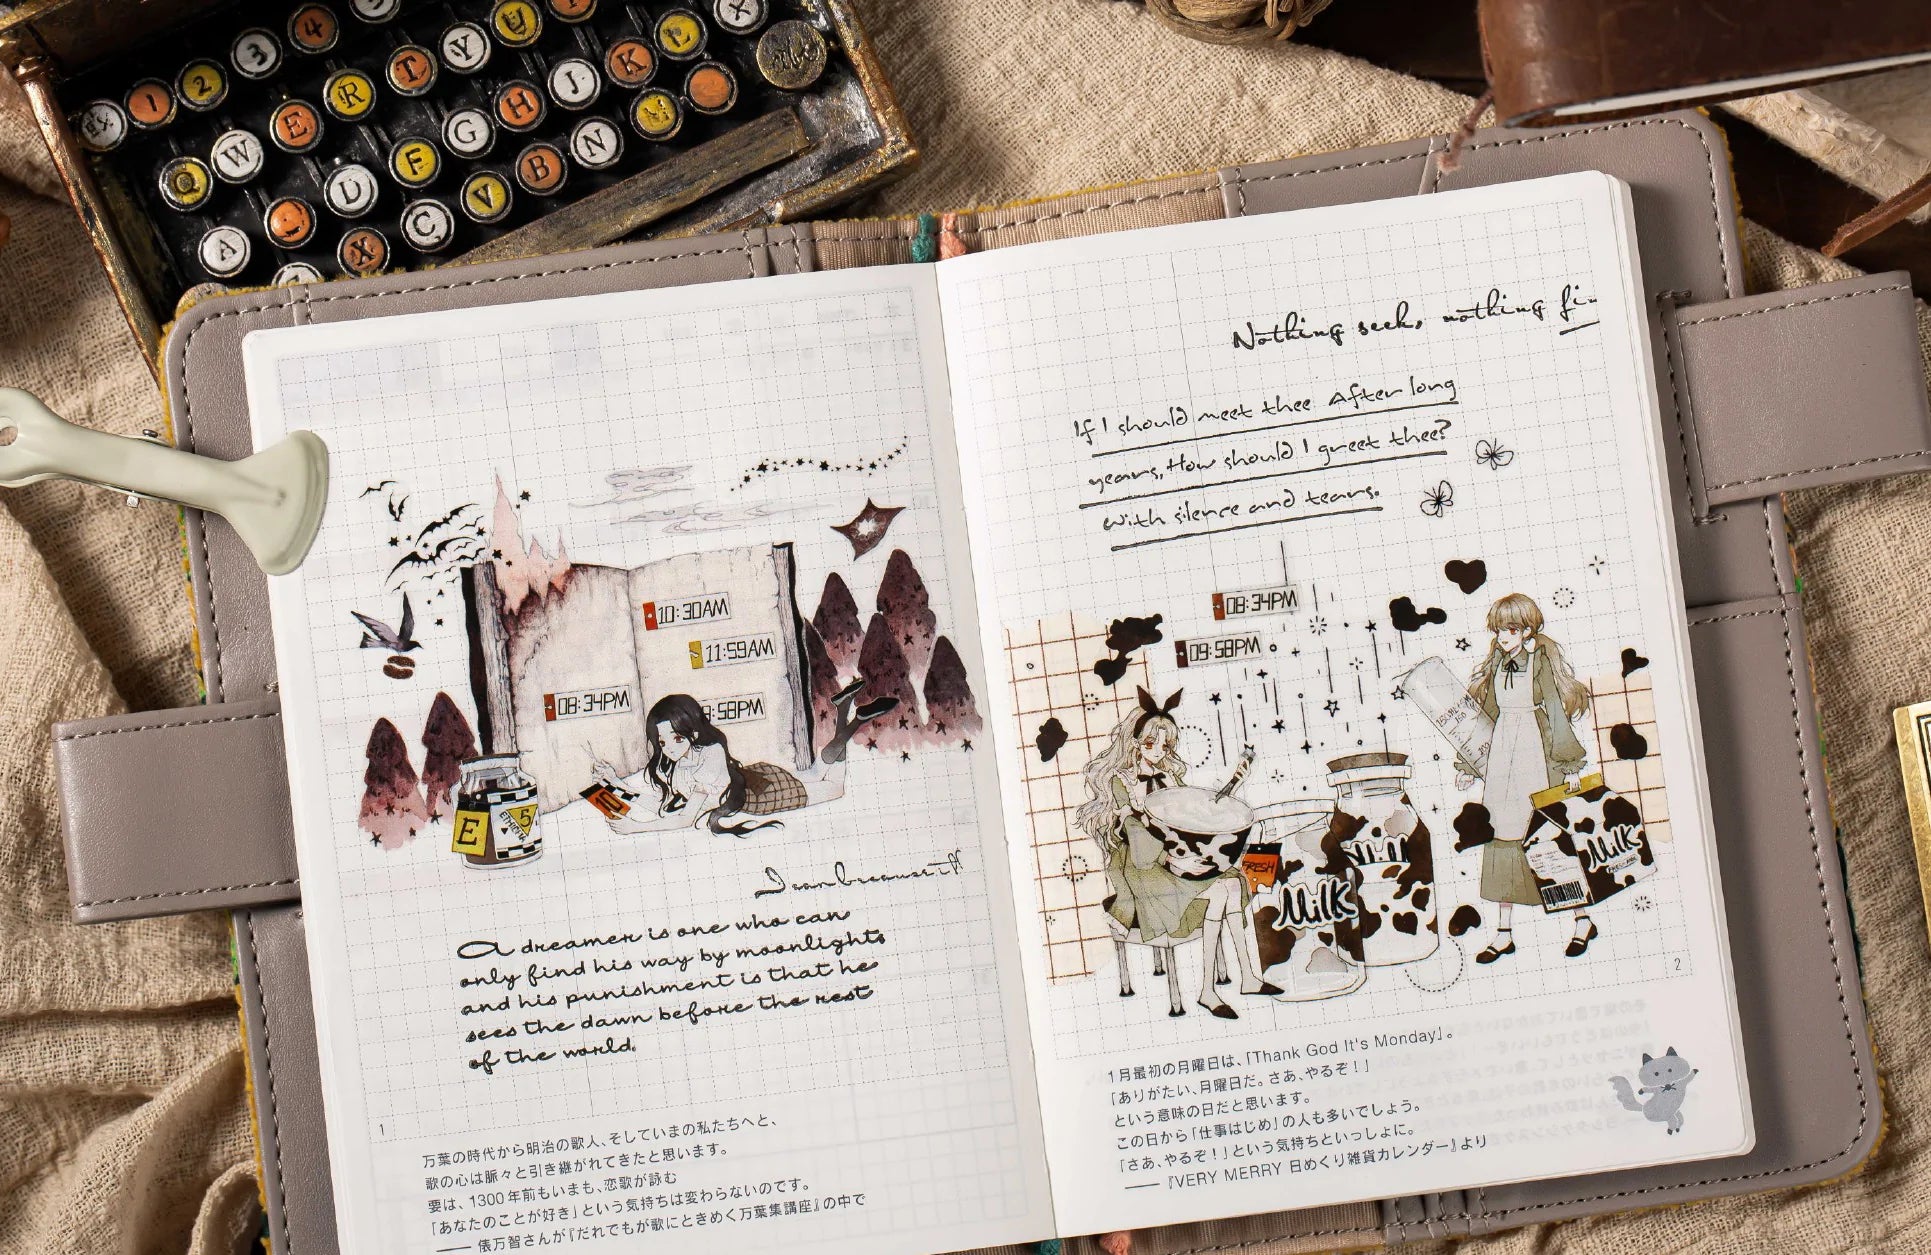 1 2 3 4
Q W E R T Y U
A D F G H J K L
X C V B N M
10:30AM
11:59AM
08:34PM
9:58PM
E
5
A dreamer is one who can
only find his way by moonlight,
and his punishment is that he
sees the dawn before the rest
of the world.
1
万葉の時代から明治の歌人、そしていまの私たちへと、
歌の心は脈々と引き継がれてきたと思います。
要は、1300年前もいまも、恋歌が詠む
「あなたのことが好き」という気持ちは変わらないのです。
—— 俵万智さんが『だれでもが歌にときめく万葉集講座』の中で
Nothing seek, nothing fi
If I should meet thee After long
years, How should I greet thee?
with silence and tears.
08:34PM
09:58PM
FRESH
Milk
Milk
2
1月最初の月曜日は、「Thank God It's Monday」。
「ありがたい、月曜日だ。さあ、やるぞ！」
という意味の日だと思います。
この日から「仕事はじめ」の人も多いでしょう。
「さあ、やるぞ！」という気持ちといっしょに。
—— 『VERY MERRY 日めくり雑貨カレンダー』より